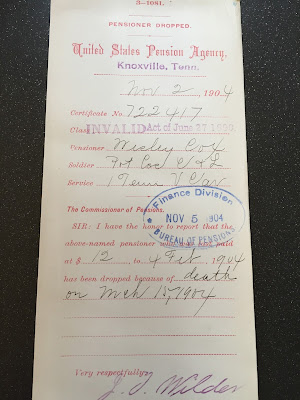 3-1081.
PENSIONER DROPPED.
United States Pension Agency,
Knoxville, Tenn.
Nov 2, 1904
Certificate No. 722.417
Class INVALID Act of June 27 1890.
Pensioner Wesley Cox
Soldier
Service 1 Tenn V Cav
The Commissioner of Pensions.
SIR: I have the honor to report that the
above-named pensioner who was last paid
at $ 12, to 4 Feb, 1904
has been dropped because of death
on Mch 15, 1904
Finance Division
NOV 5 1904
BUREAU OF PENSIONS
Very respectfully,
J. T. Wilder